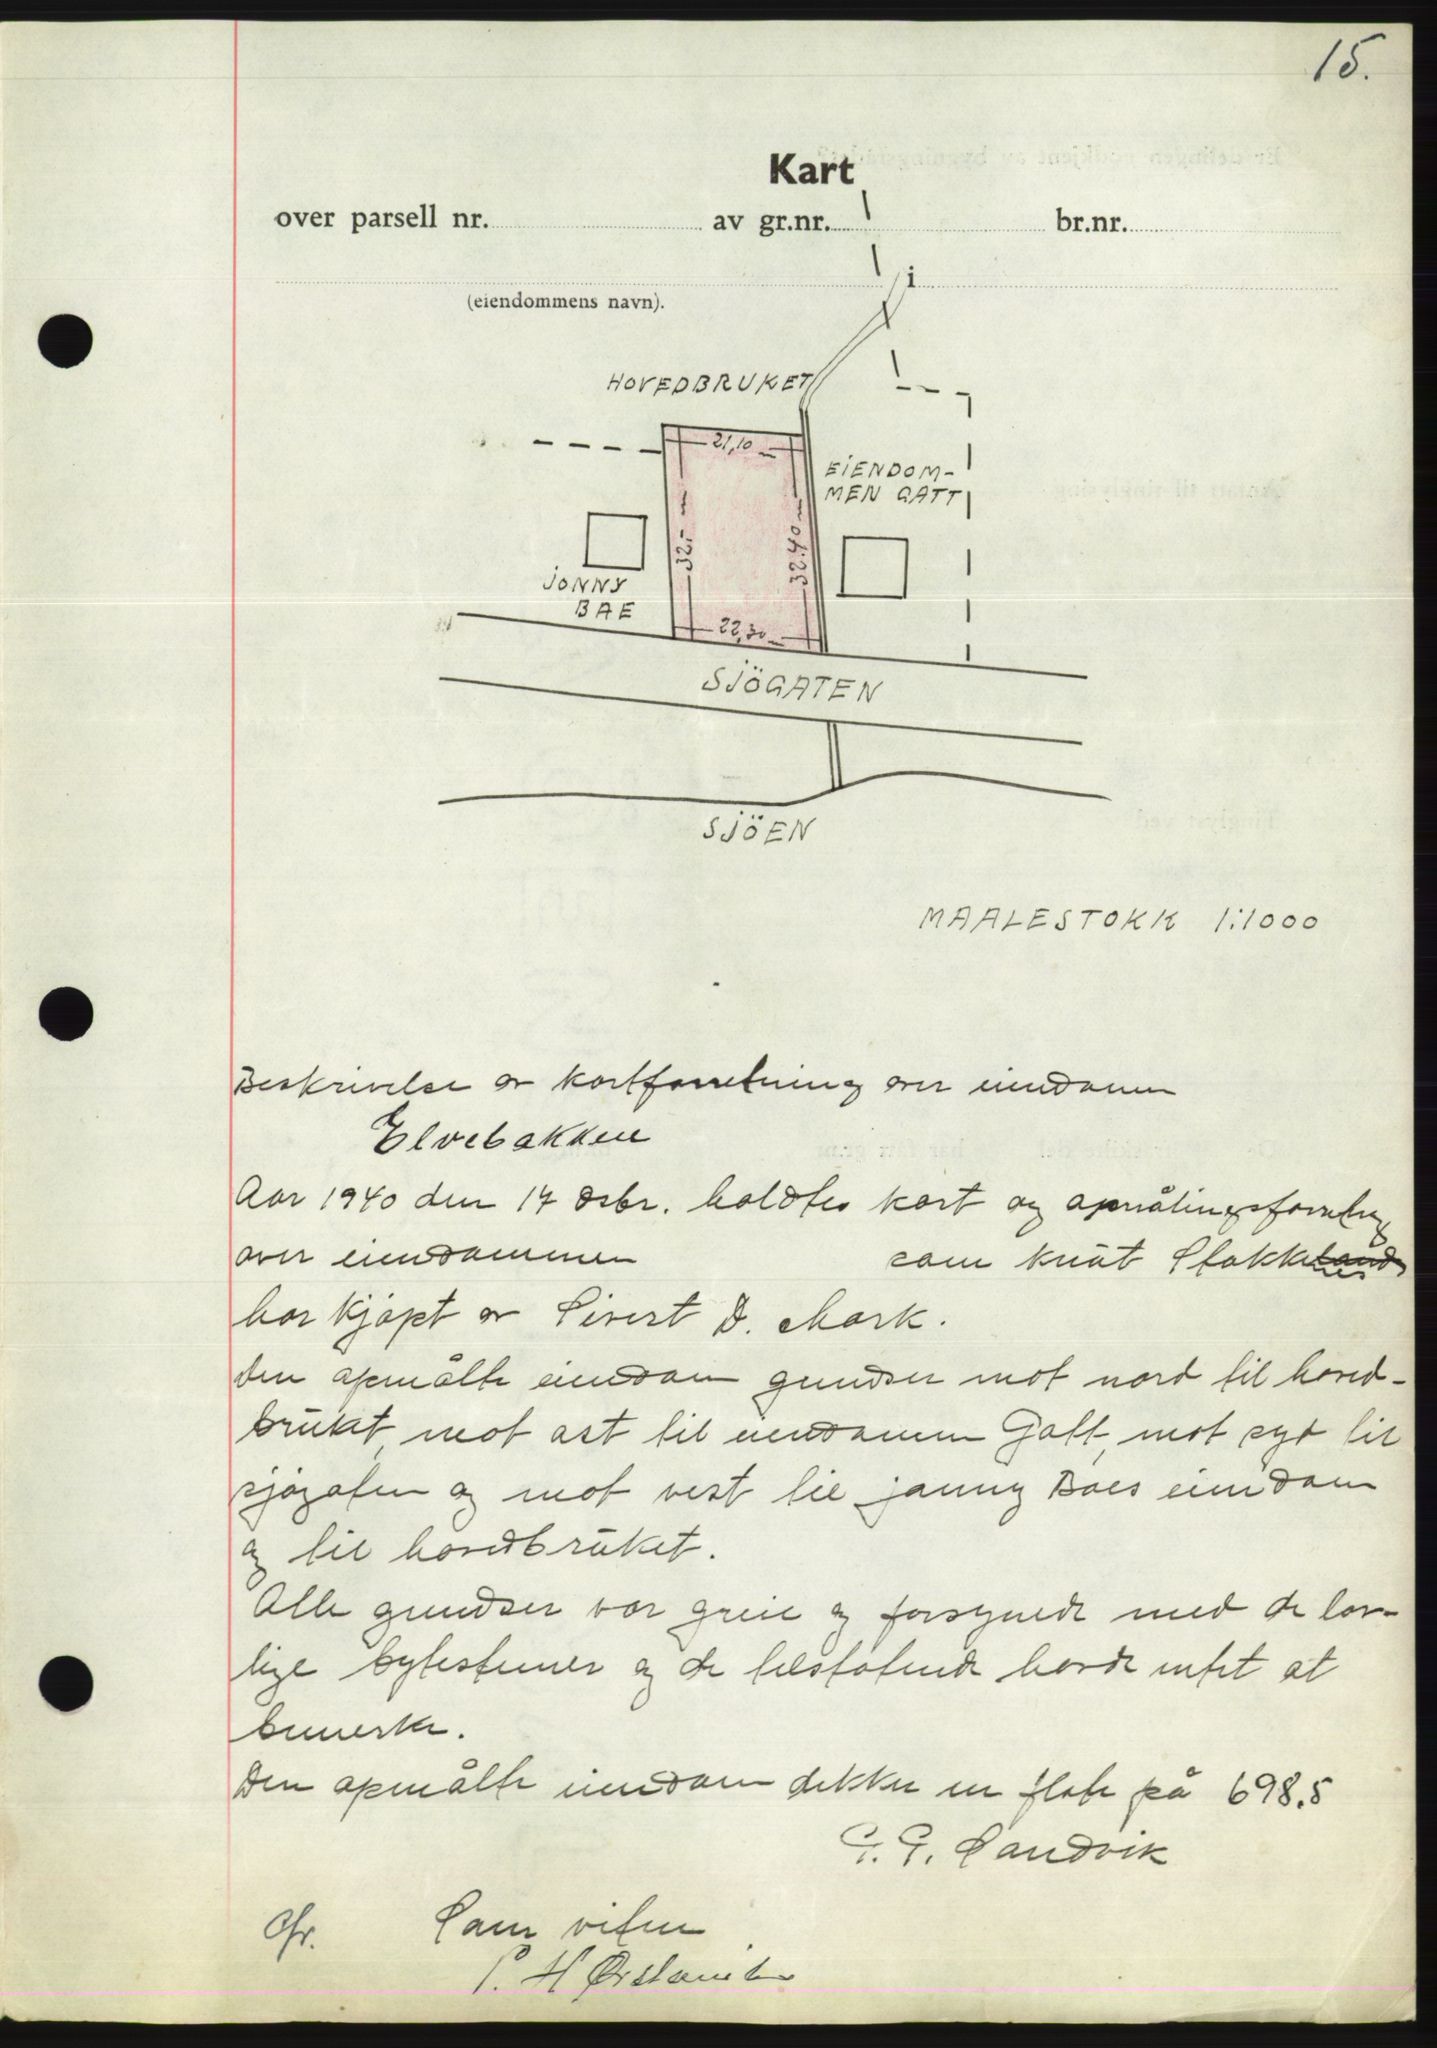 15.
Kart
over parsell nr. av gr.nr. br.nr.
i
(eiendommens navn).
HOVEDBRUKET
21,10
EIENDOM-
MEN GATT
32.-
32.40
JONNY
BAE
22,30
SJÖGATEN
SJÖEN
MAALESTOKK 1:1000
Beskrivelse av kartforretning over eiendomen
Elvebakken
Aar 1940 den 17 dsbr. holdtes kart og opmålingsforretng
over eiendommen som Knut Stokk
har kjøpt av Sivert D. Mork.
Den opmålte eiendom grendser mot nord til hoved-
bruket, mot øst til eiendomen Gatt, mot syd til
sjøgaten og mot vest til Jonny Baes eiendom
og til hovedbruket.
Alle grendser var greie og forsynede med de lov-
lige bytesteiner og de tilstøtende havde intet at
bemerke.
Den opmålte eiendom dekker en flate på 698.5
G. G. Sandvik
Som viten
P. H